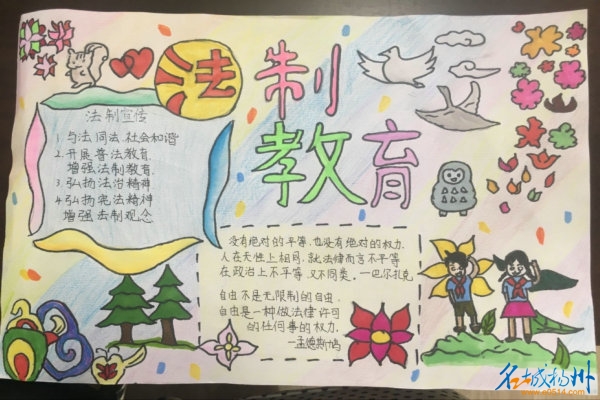 法制教育
法制宣传
1. 与法同法、社会和谐
2. 开展普法教育
增强法制教育.
3. 弘扬法治精神
4. 弘扬宪法精神
增强法制观念
没有绝对的平等,也没有绝对的权力.
人在天性上相同,就法律而言不平等
在政治上不平等、又不同类。—巴尔扎克
自由不是无限制的自由.
自由是一种做法律许可
的任何事的权力.
—孟德斯鸠
名城扬州
www.c0514.com